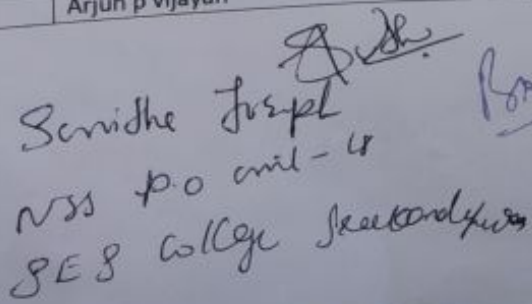 Arjun p vijayan
Sanidhe Joseph
NSS P.O unit - 
SES College Sreekandapuram